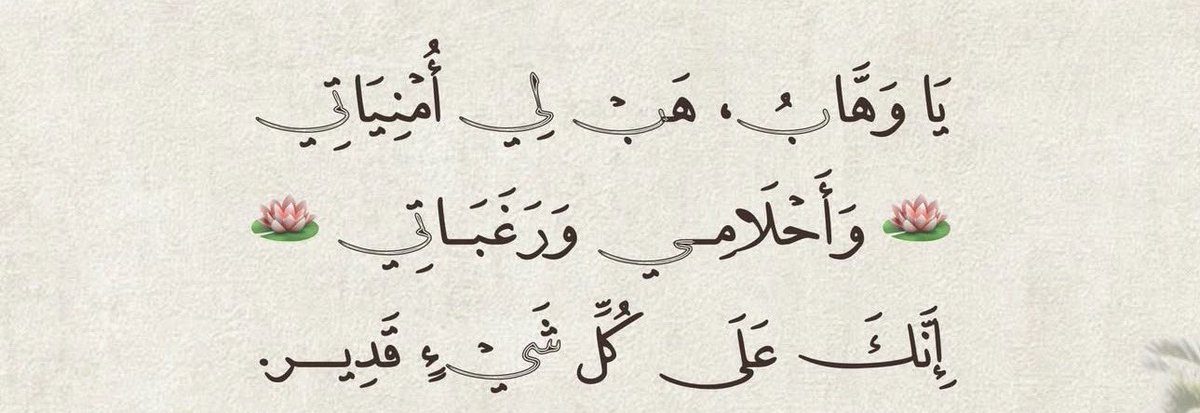 يَا وَهَّابُ، هَبْ لِي أُمْنِيَاتِي
🪷 وَأَحْلَامِــي وَرَغَبَــاتِي 🪷
إِنَّكَ عَلَى كُلِّ شَيْءٍ قَدِيــر.